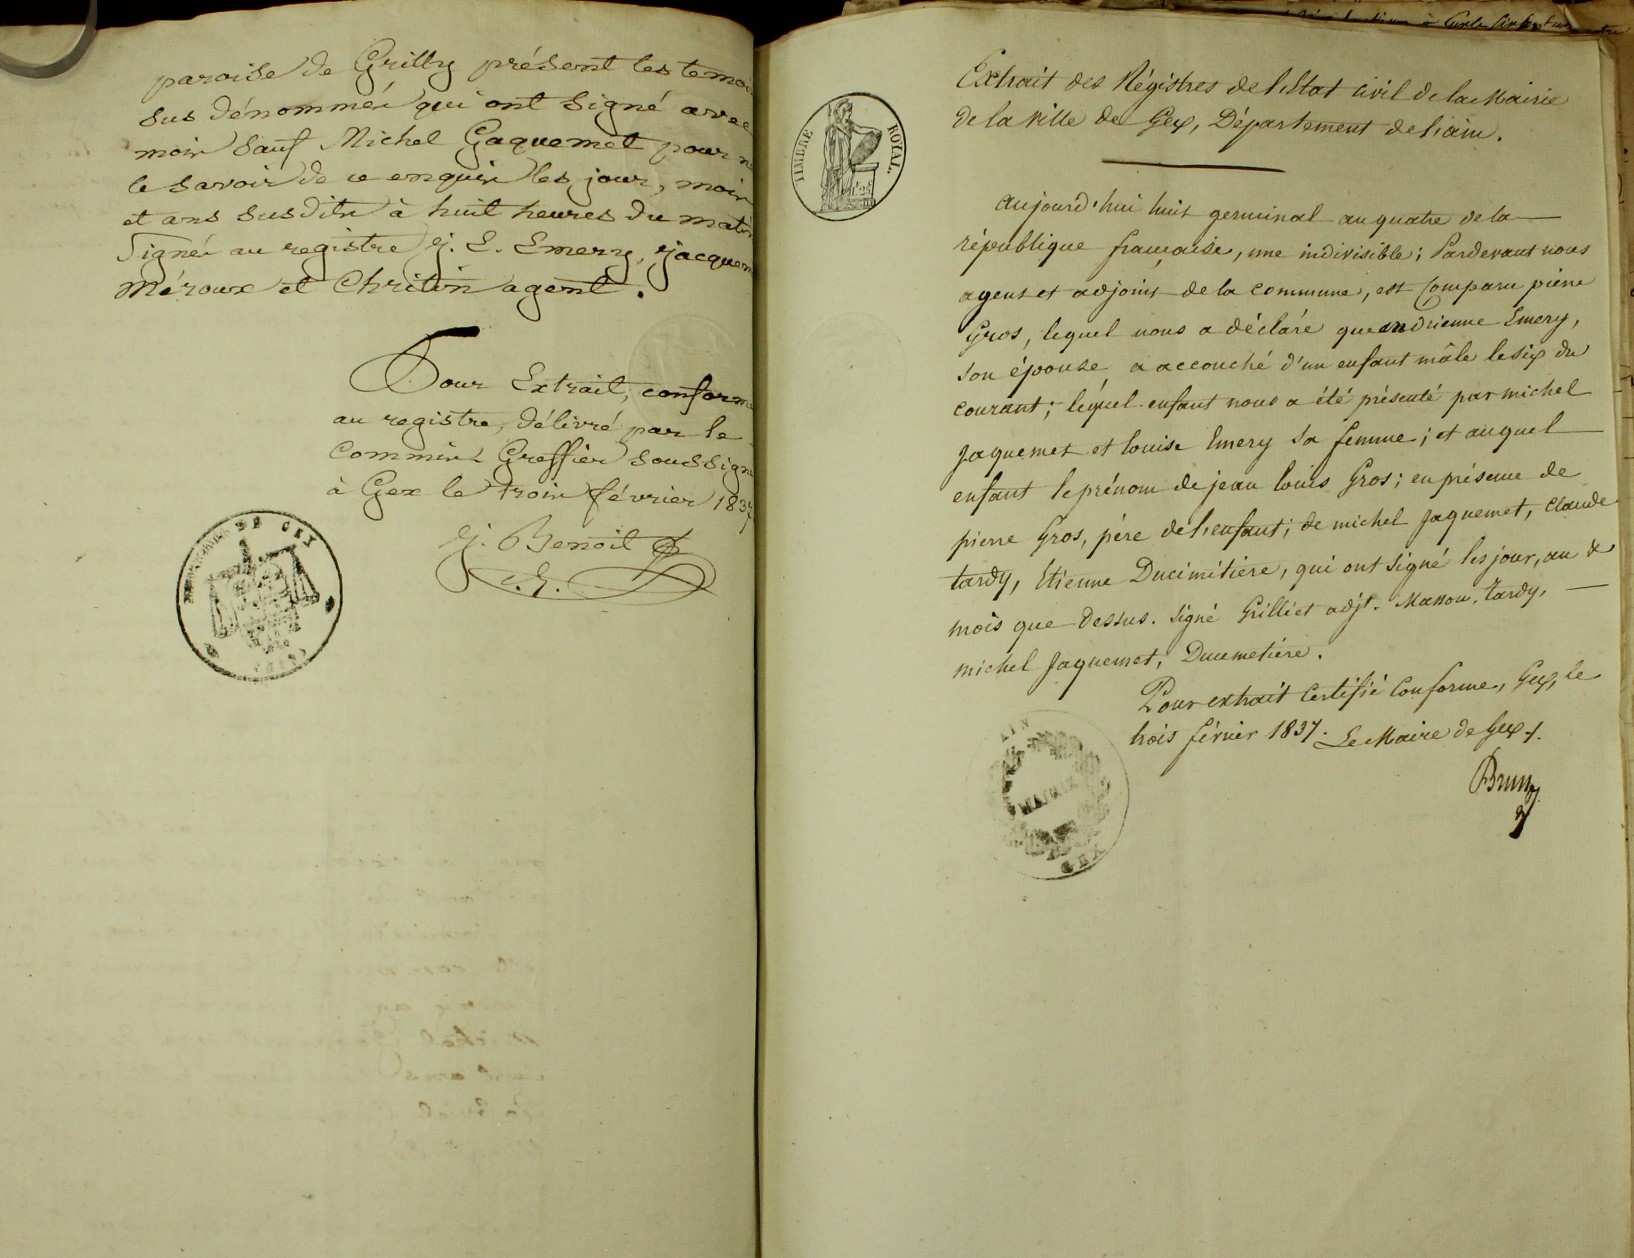 paroise de Grilly présent les temoi
sus dénommés qui ont signé avec
moi sauf Michel Gaquemet pour n
le savoir de ce enquis les jour, mois
et ans susdits à huit heures du mati
Signé au registre j. L. Emery, jacquem
Méroux et Chrétin agent.
Pour Extrait, conforme
au registre, délivré par le
Commis Greffier soussign
à Gex le trois février 1837
j. Benoit
C. G.
DE GEX
Extrait des Régistres de l'Etat civil de la Mairie
de la Ville de Gex, Département de l'ain.
TIMBRE ROYAL.
aujourd'hui huit germinal an quatre de la
république française, une indivisible; Pardevant nous
agens et adjoint de la commune, est Comparu pierre
Gros, lequel nous a déclaré que andrienne Emery,
son épouse a accouché d'un enfant mâle le six du
courant; lequel enfant nous a été présenté par michel
Jaquemet et louise Emery sa femme; et auquel
enfant le prénom de jean louis Gros; en présence de
pierre Gros, père de l'enfant; de michel Jaquemet, claude
tardy, Etienne Ducimitière, qui ont signé les jour, an &
mois que dessus. signé Grilliet adjt. Masson. tardy,
michel Jaquemet, Ducimetière.
Pour extrait Certifié Conforme, Gex, le
trois février 1837. Le Maire de Gex.
AIN
MAIRIE
GEX